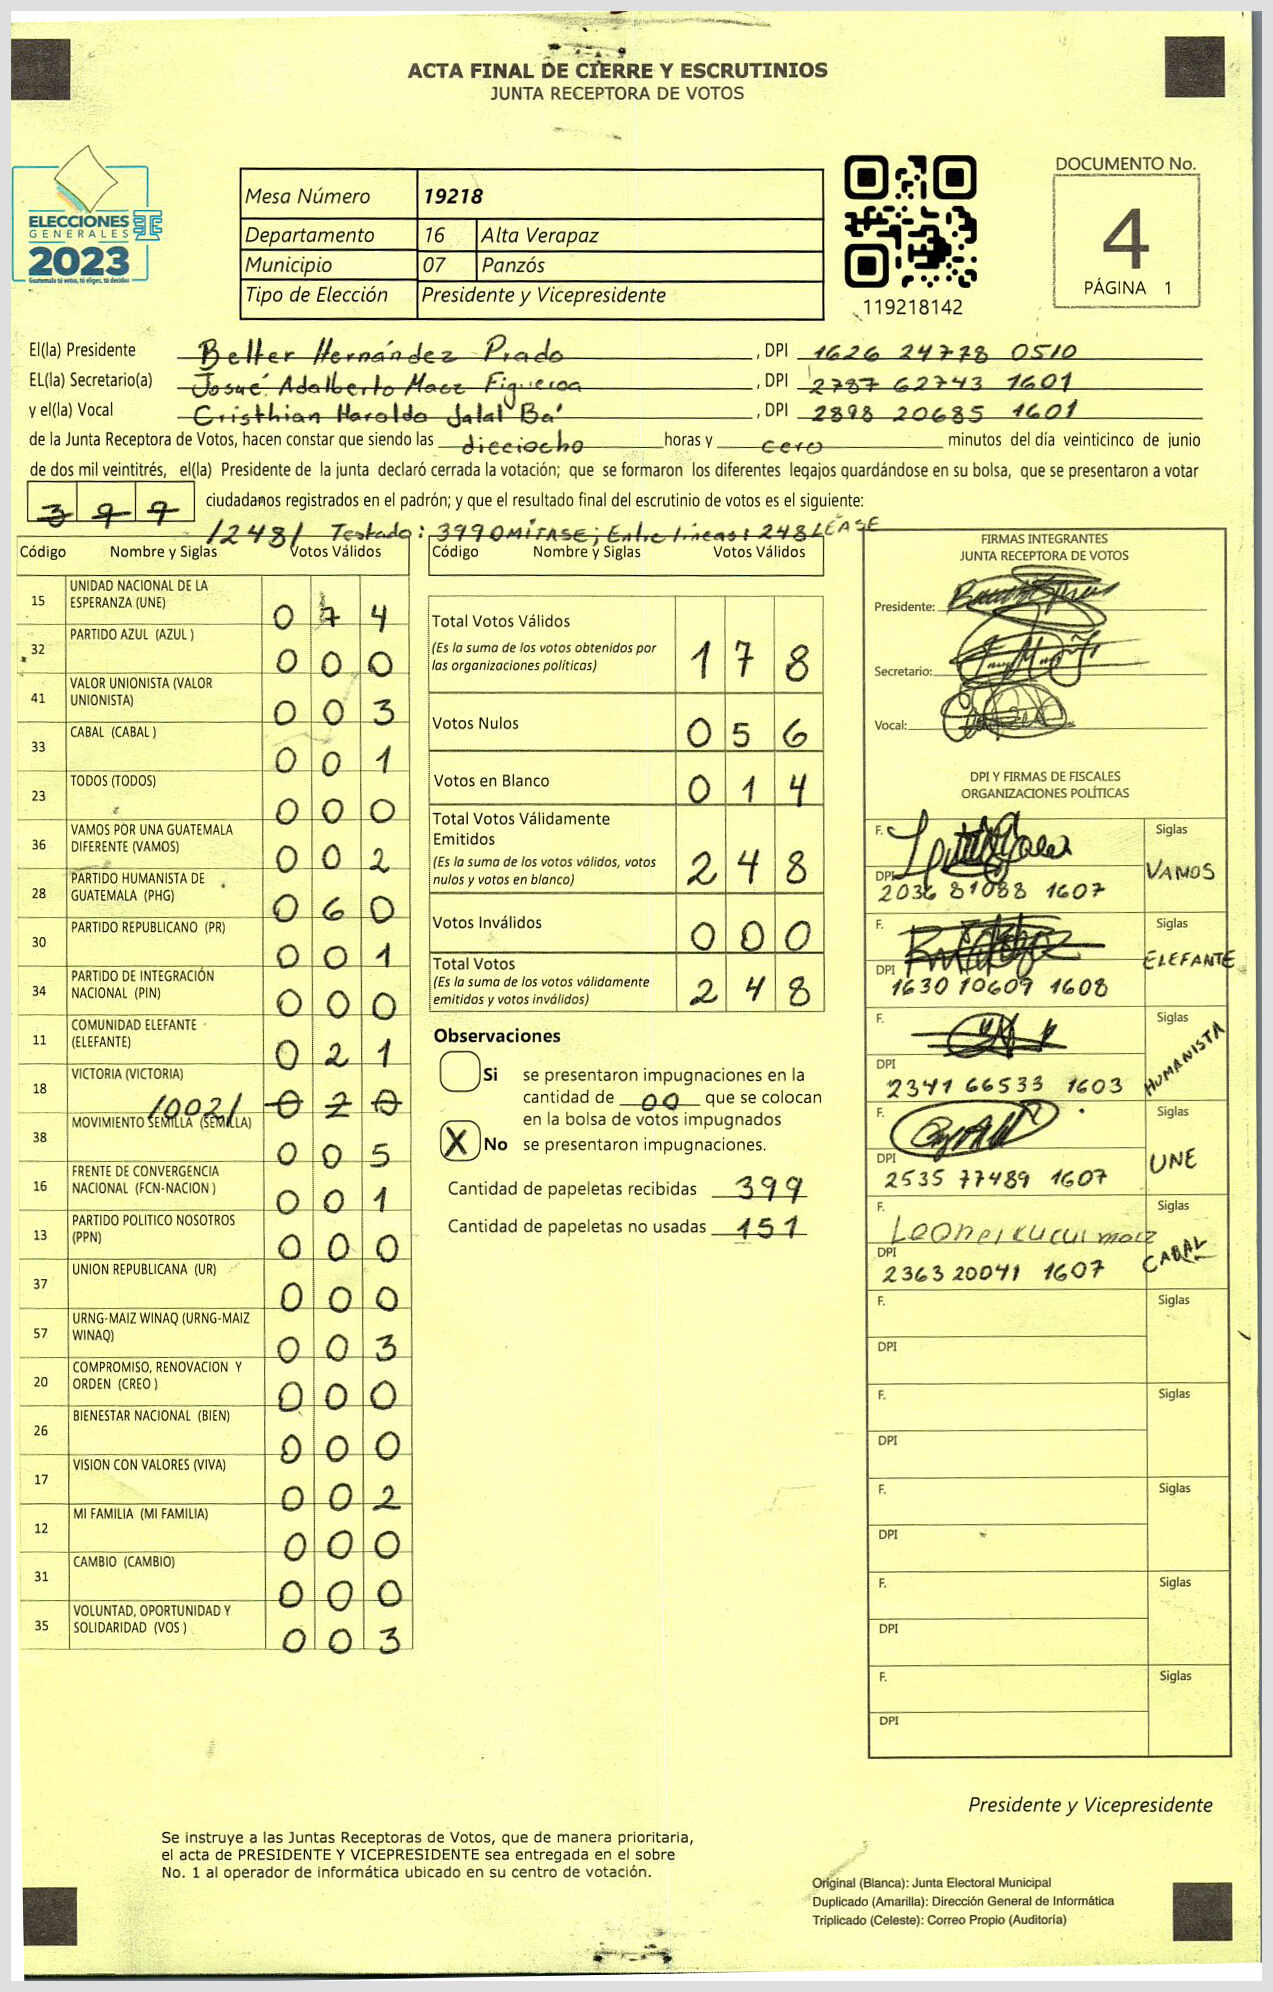 ACTA FINAL DE CIERRE Y ESCRUTINIOS
JUNTA RECEPTORA DE VOTOS
ELECCIONES
GENERALES
2023
Guatemala tú votas, tú eliges, tú decides
Mesa Número 19218
Departamento 16 Alta Verapaz
Municipio 07 Panzós
Tipo de Elección Presidente y Vicepresidente
119218142
DOCUMENTO No.
4
PÁGINA 1
El(la) Presidente Belter Hernández Prado , DPI 1626 24778 0510
EL(la) Secretario(a) Josué Adalberto Maez Figueroa , DPI 2787 62743 1601
y el(la) Vocal Cristhian Haroldo Jalal Ba' , DPI 2898 20685 1601
de la Junta Receptora de Votos, hacen constar que siendo las dieciocho horas y cero minutos del día veinticinco de junio
de dos mil veintitrés, el(la) Presidente de la junta declaró cerrada la votación; que se formaron los diferentes legajos guardándose en su bolsa, que se presentaron a votar
3 9 9 ciudadanos registrados en el padrón; y que el resultado final del escrutinio de votos es el siguiente:
/248/ Testado: 399 OMITASE; Entre líneas: 248 LEASE
Código Nombre y Siglas Votos Válidos
15 UNIDAD NACIONAL DE LA ESPERANZA (UNE) 0 7 4
32 PARTIDO AZUL (AZUL ) 0 0 0
41 VALOR UNIONISTA (VALOR UNIONISTA) 0 0 3
33 CABAL (CABAL ) 0 0 1
23 TODOS (TODOS) 0 0 0
36 VAMOS POR UNA GUATEMALA DIFERENTE (VAMOS) 0 0 2
28 PARTIDO HUMANISTA DE GUATEMALA (PHG) 0 6 0
30 PARTIDO REPUBLICANO (PR) 0 0 1
34 PARTIDO DE INTEGRACIÓN NACIONAL (PIN) 0 0 0
11 COMUNIDAD ELEFANTE (ELEFANTE) 0 2 1
18 VICTORIA (VICTORIA) /002/ 0 2 0
38 MOVIMIENTO SEMILLA (SEMILLA) 0 0 5
16 FRENTE DE CONVERGENCIA NACIONAL (FCN-NACION ) 0 0 1
13 PARTIDO POLITICO NOSOTROS (PPN) 0 0 0
37 UNION REPUBLICANA (UR) 0 0 0
57 URNG-MAIZ WINAQ (URNG-MAIZ WINAQ) 0 0 3
20 COMPROMISO, RENOVACION Y ORDEN (CREO ) 0 0 0
26 BIENESTAR NACIONAL (BIEN) 0 0 0
17 VISION CON VALORES (VIVA) 0 0 2
12 MI FAMILIA (MI FAMILIA) 0 0 0
31 CAMBIO (CAMBIO) 0 0 0
35 VOLUNTAD, OPORTUNIDAD Y SOLIDARIDAD (VOS ) 0 0 3
Código Nombre y Siglas Votos Válidos
Total Votos Válidos 1 7 8
(Es la suma de los votos obtenidos por
las organizaciones políticas)
Votos Nulos 0 5 6
Votos en Blanco 0 1 4
Total Votos Válidamente
Emitidos 2 4 8
(Es la suma de los votos válidos, votos
nulos y votos en blanco)
Votos Inválidos 0 0 0
Total Votos 2 4 8
(Es la suma de los votos válidamente
emitidos y votos inválidos)
Observaciones
Si se presentaron impugnaciones en la
cantidad de 00 que se colocan
en la bolsa de votos impugnados
X No se presentaron impugnaciones.
Cantidad de papeletas recibidas 399
Cantidad de papeletas no usadas 151
FIRMAS INTEGRANTES
JUNTA RECEPTORA DE VOTOS
Presidente:
Secretario:
Vocal:
DPI Y FIRMAS DE FISCALES
ORGANIZACIONES POLÍTICAS
F. Siglas VAMOS
DPI 2036 81088 1607
F. Siglas ELEFANTE
DPI 1630 10609 1608
F. Siglas HUMANISTA
DPI 2341 66533 1603
F. Siglas UNE
DPI 2535 77489 1607
F. Leonel cucul maiz Siglas CABAL
DPI 2363 20041 1607
F. Siglas
DPI
F. Siglas
DPI
F. Siglas
DPI
F. Siglas
DPI
F. Siglas
DPI
Presidente y Vicepresidente
Se instruye a las Juntas Receptoras de Votos, que de manera prioritaria,
el acta de PRESIDENTE Y VICEPRESIDENTE sea entregada en el sobre
No. 1 al operador de informática ubicado en su centro de votación.
Original (Blanca): Junta Electoral Municipal
Duplicado (Amarilla): Dirección General de Informática
Triplicado (Celeste): Correo Propio (Auditoría)